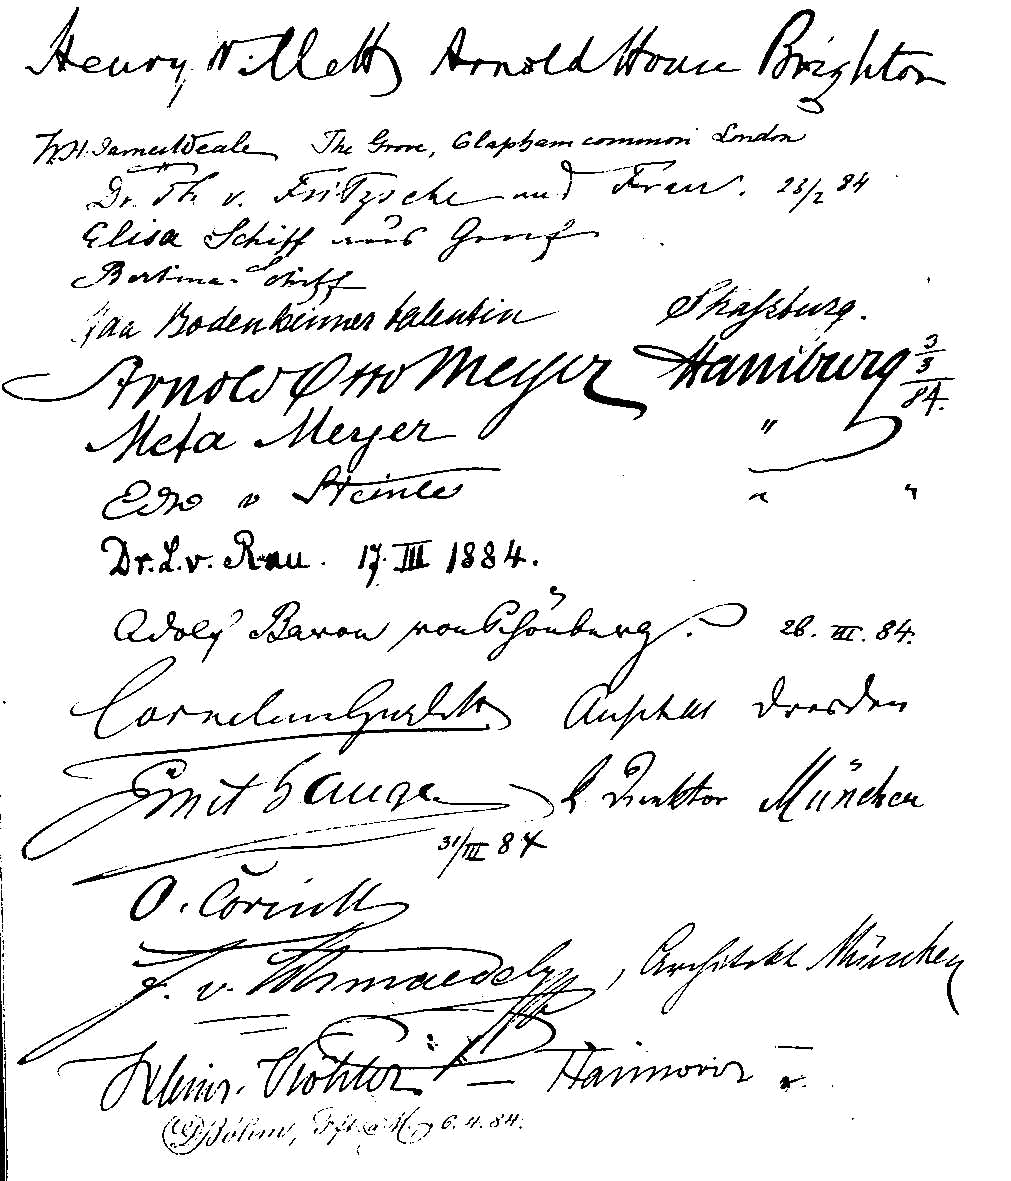 Henry Willett Arnold House Brighton
W.H. James Weale The Grove, Clapham common London
Dr. Th. v. Fritzsche und Frau. 23/2 84
Elisa Schiff aus Genf
Bertina Schiff
Bodenheimer Valentin Straßburg.
Arnold Otto Meyer Hamburg 3/3 84.
Meta Meyer "
Edw v Steinle " "
Dr. L. v. Rau. 17. III 1884.
Adolf Baron von Schönberg. 26. III. 84.
Cornelius Gurlitt Dresden
Direktor München
31/III 84
O.
F. v. Schmaedel, Architekt München
Heinr. Köhler — Hannover
Böhm, 6.4.84.